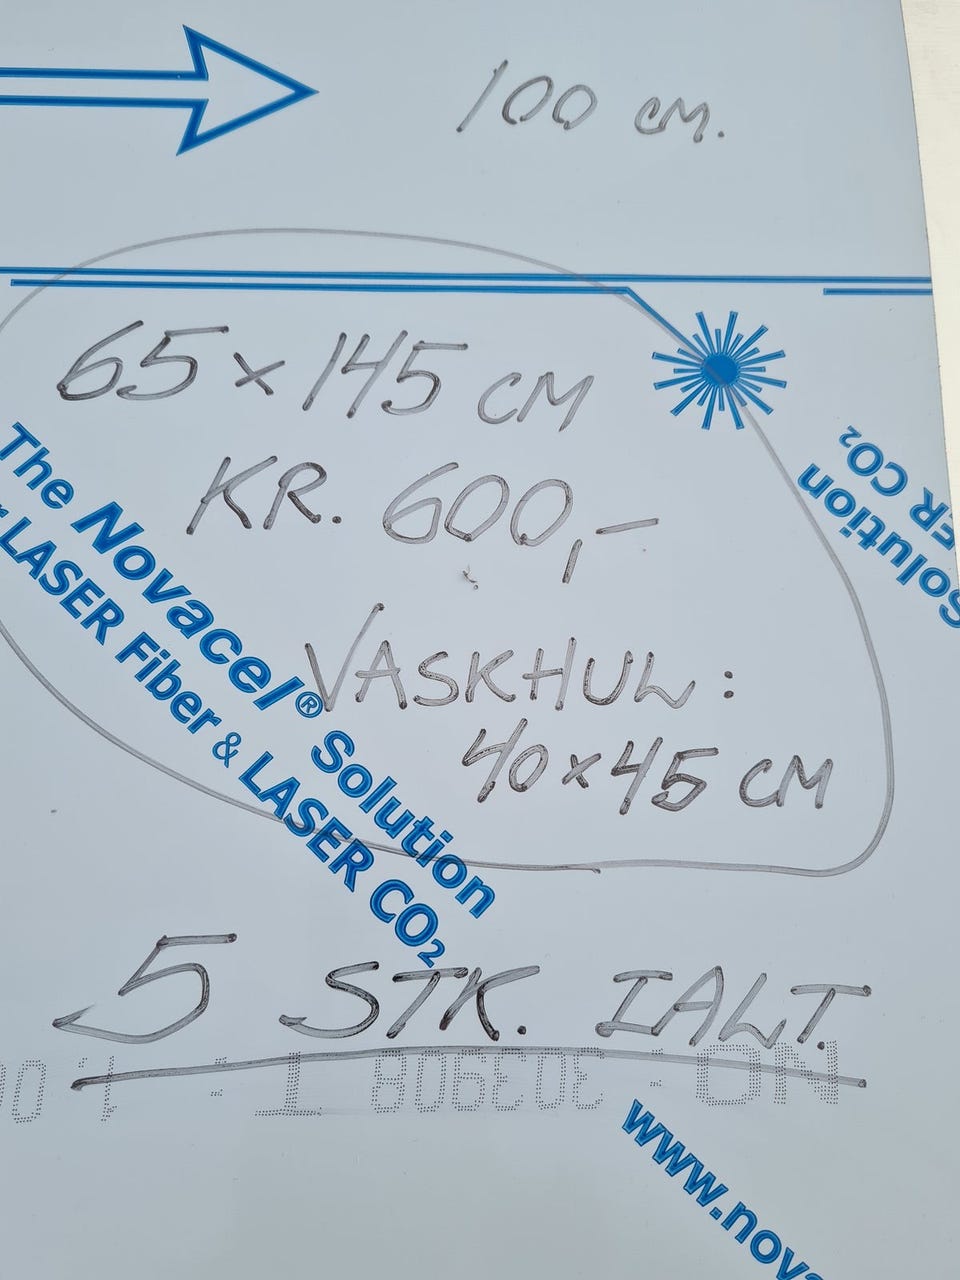 100 CM.
65 x 145 CM
KR. 600,-
VASKHUL:
40 x 45 CM
The Novacel® Solution
LASER Fiber & LASER CO2
Solution
ER CO2
5 STK. IALT.
www.nova